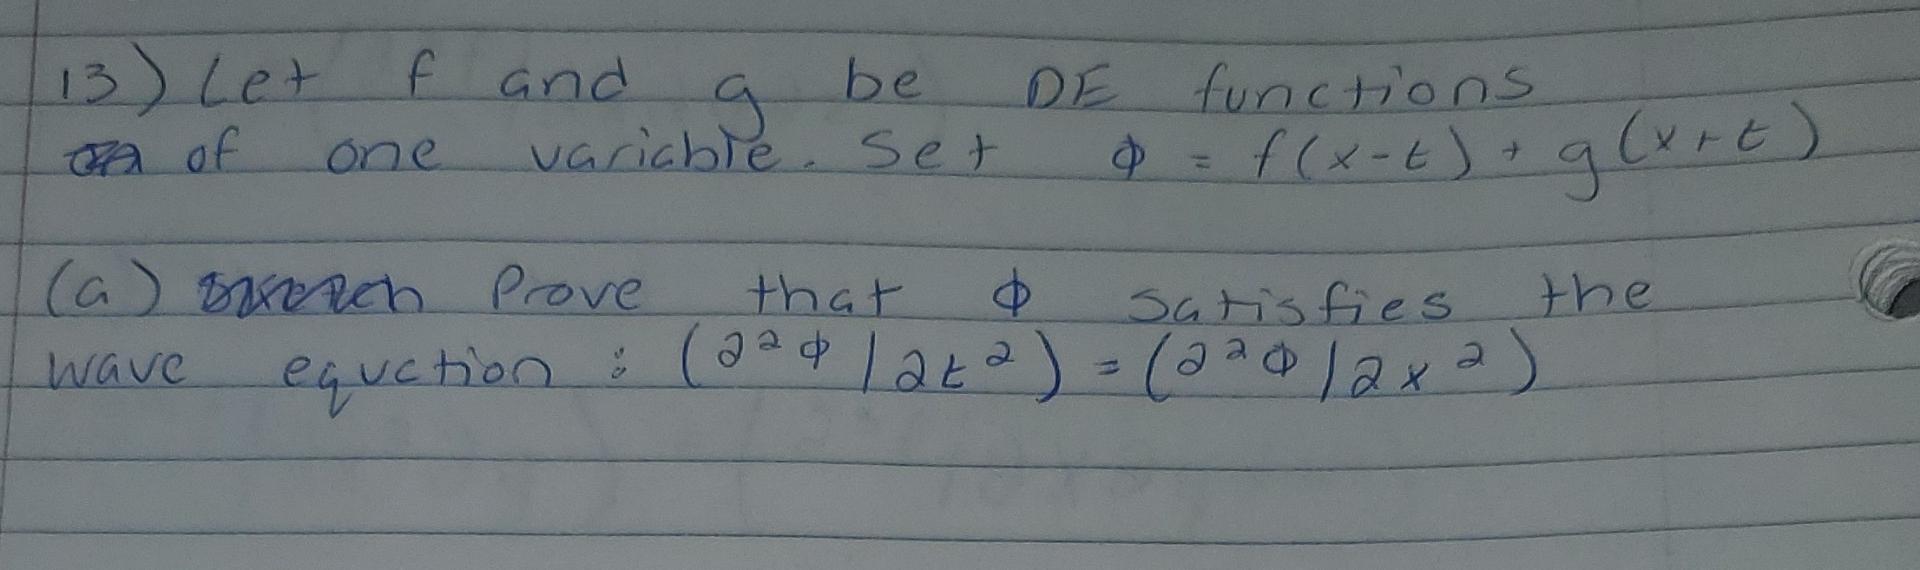 13) Let f and g be DE functions
of one variable. Set φ = f(x-t) + g(x+t)
(a) Prove that φ satisfies the
wave equction : (∂²φ/∂t²) = (∂²φ/∂x²)